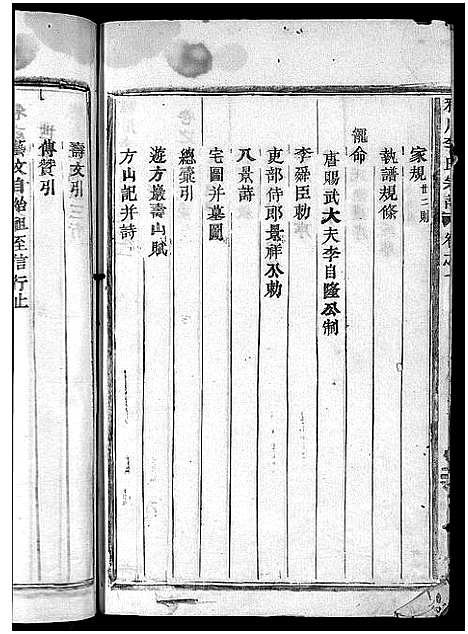 家規 卅二則
執譜規條
寵命
唐賜武大夫李自隆公制
李舜臣勅
吏部侍郎景祥公勅
八景詩
宅圖并墓圖
總蒙引
遊方巖壽山賦
方山記并詩
壽文引
傳贊引
藝文自始祖至信行止